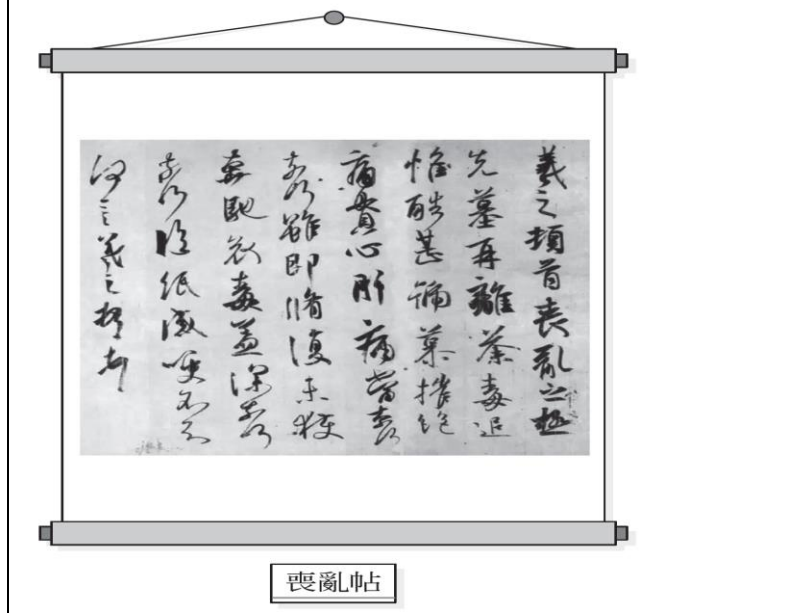 羲之頓首喪亂之極
先墓再離荼毒追
惟酷甚號慕摧絕
痛貫心肝痛當奈何
奈何雖即脩復未獲
奔馳哀毒益深奈何
奈何臨紙感哽不知
何言羲之頓首
喪亂帖